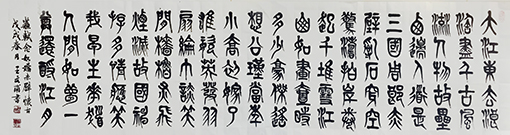 大江東去浪
淘盡千古風
流人物故壘
西邊人道是
三國周郎赤
壁亂石穿空
驚濤拍岸捲
起千堆雪江
山如畫一時
多少豪傑遙
想公瑾當年
小喬初嫁了
雄姿英發羽
扇綸巾談笑
間檣櫓灰飛
煙滅故國神
遊多情應笑
我早生華髮
人間如夢一
尊還酹江月
蘇軾念奴嬌赤壁懷古
戊戌春月